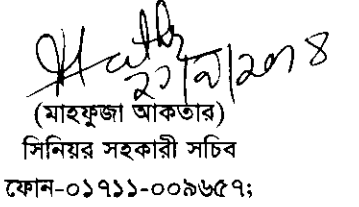 (মাহফুজা আকতার)
সিনিয়র সহকারী সচিব
ফোন-০১৭১১-০০৯৬৫৭;